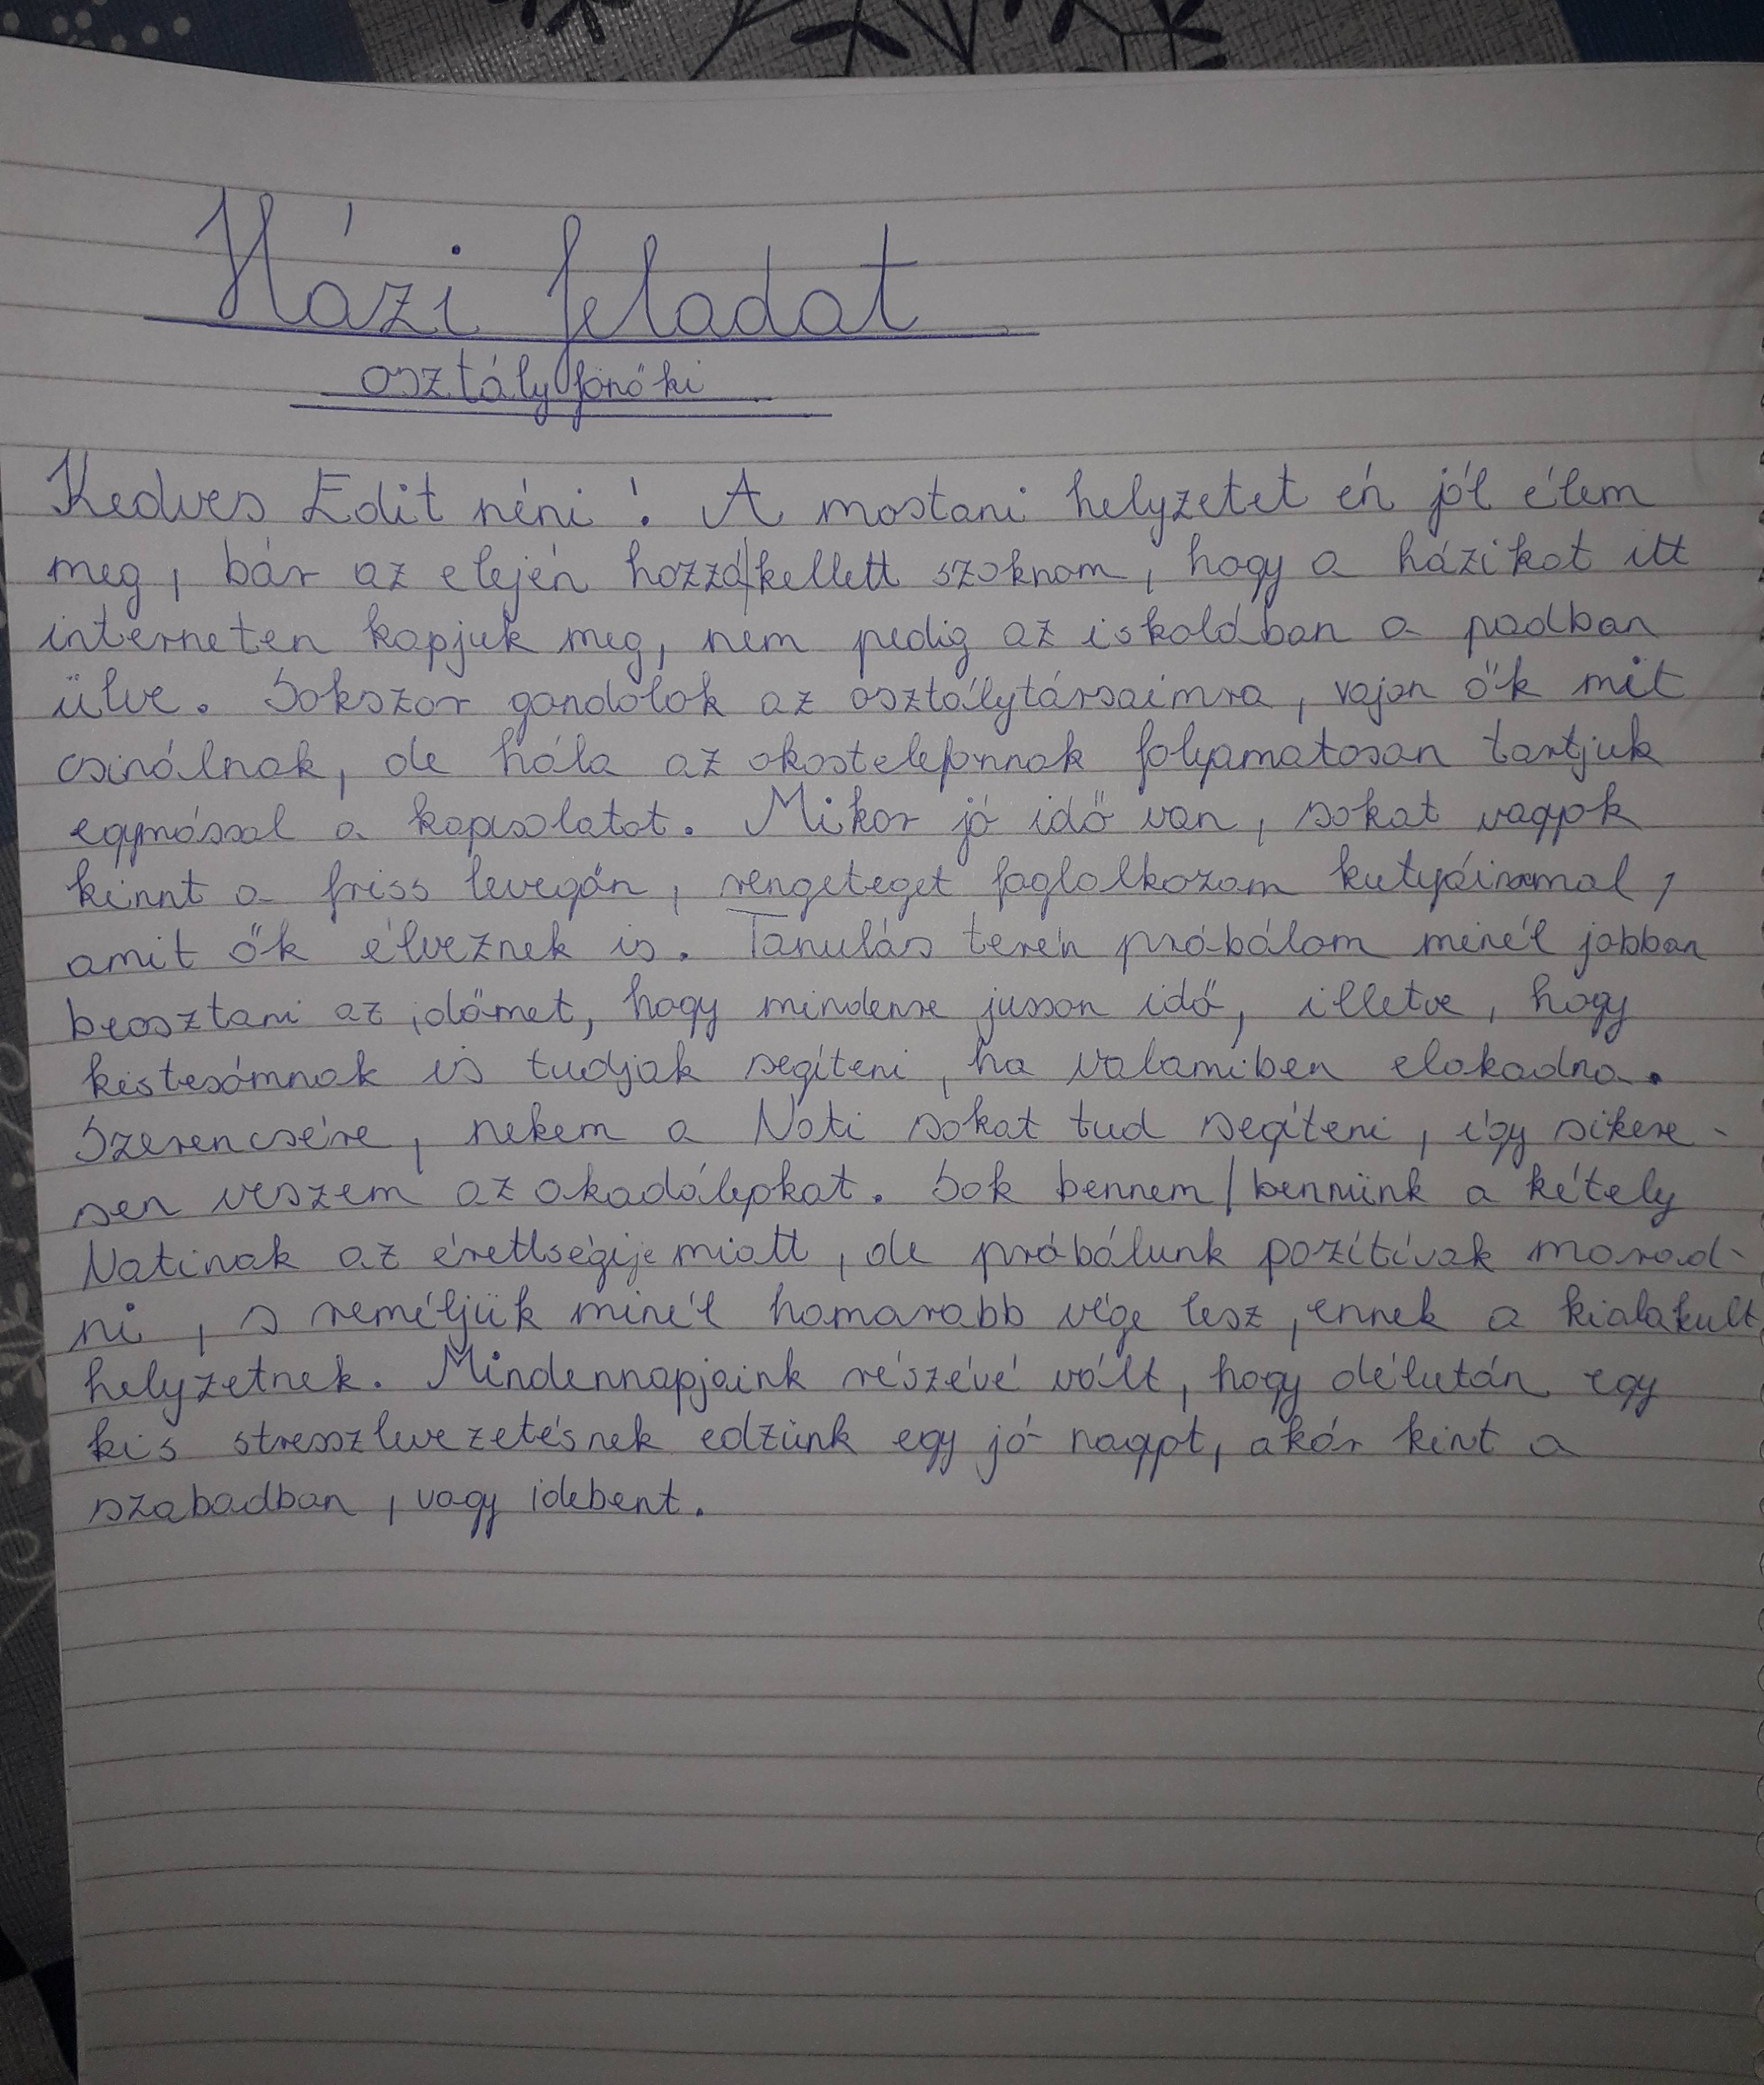 Házi feladat
osztályfőnöki
Kedves Edit néni! A mostani helyzetet én jól élem
meg, bár az elején hozzá|kellett szoknom, hogy a házikat itt
interneten kapjuk meg, nem pedig az iskolában a padban
ülve. Sokszor gondolok az osztálytársaimra, vajon ők mit
csinálnak, de hála az okostelefonnak folyamatosan tartjuk
egymással a kapcsolatot. Mikor jó idő van, sokat vagyok
kinnt a friss levegőn, rengeteget foglalkozom kutyáimmal,
amit ők élveznek is. Tanulás terén próbálom minél jobban
beosztani az időmet, hogy mindenre jusson idő, illetve, hogy
kistesómnak is tudjak segíteni, ha valamiben elakadna.
Szerencsére, nekem a Nati sokat tud segíteni, így sikere-
sen veszem az akadályokat. Sok bennem/bennünk a kétely
Natinak az érettségije miatt, de próbálunk pozitívak marad-
ni, s reméljük minél hamarabb vége lesz, ennek a kialakult
helyzetnek. Mindennapjaink részévé vált, hogy délután egy
kis stresszlevezetésnek edzünk egy jó nagyot, akár kint a
szabadban, vagy idebent.